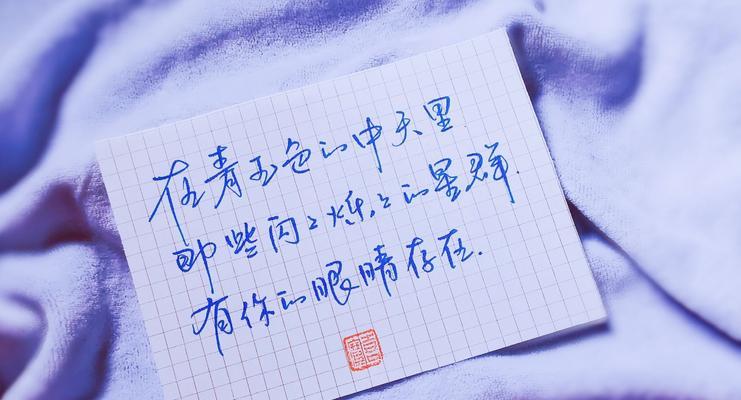 在青玉色的中天里.
那些闪〻烁〻的星群.
有你的眼睛存在.